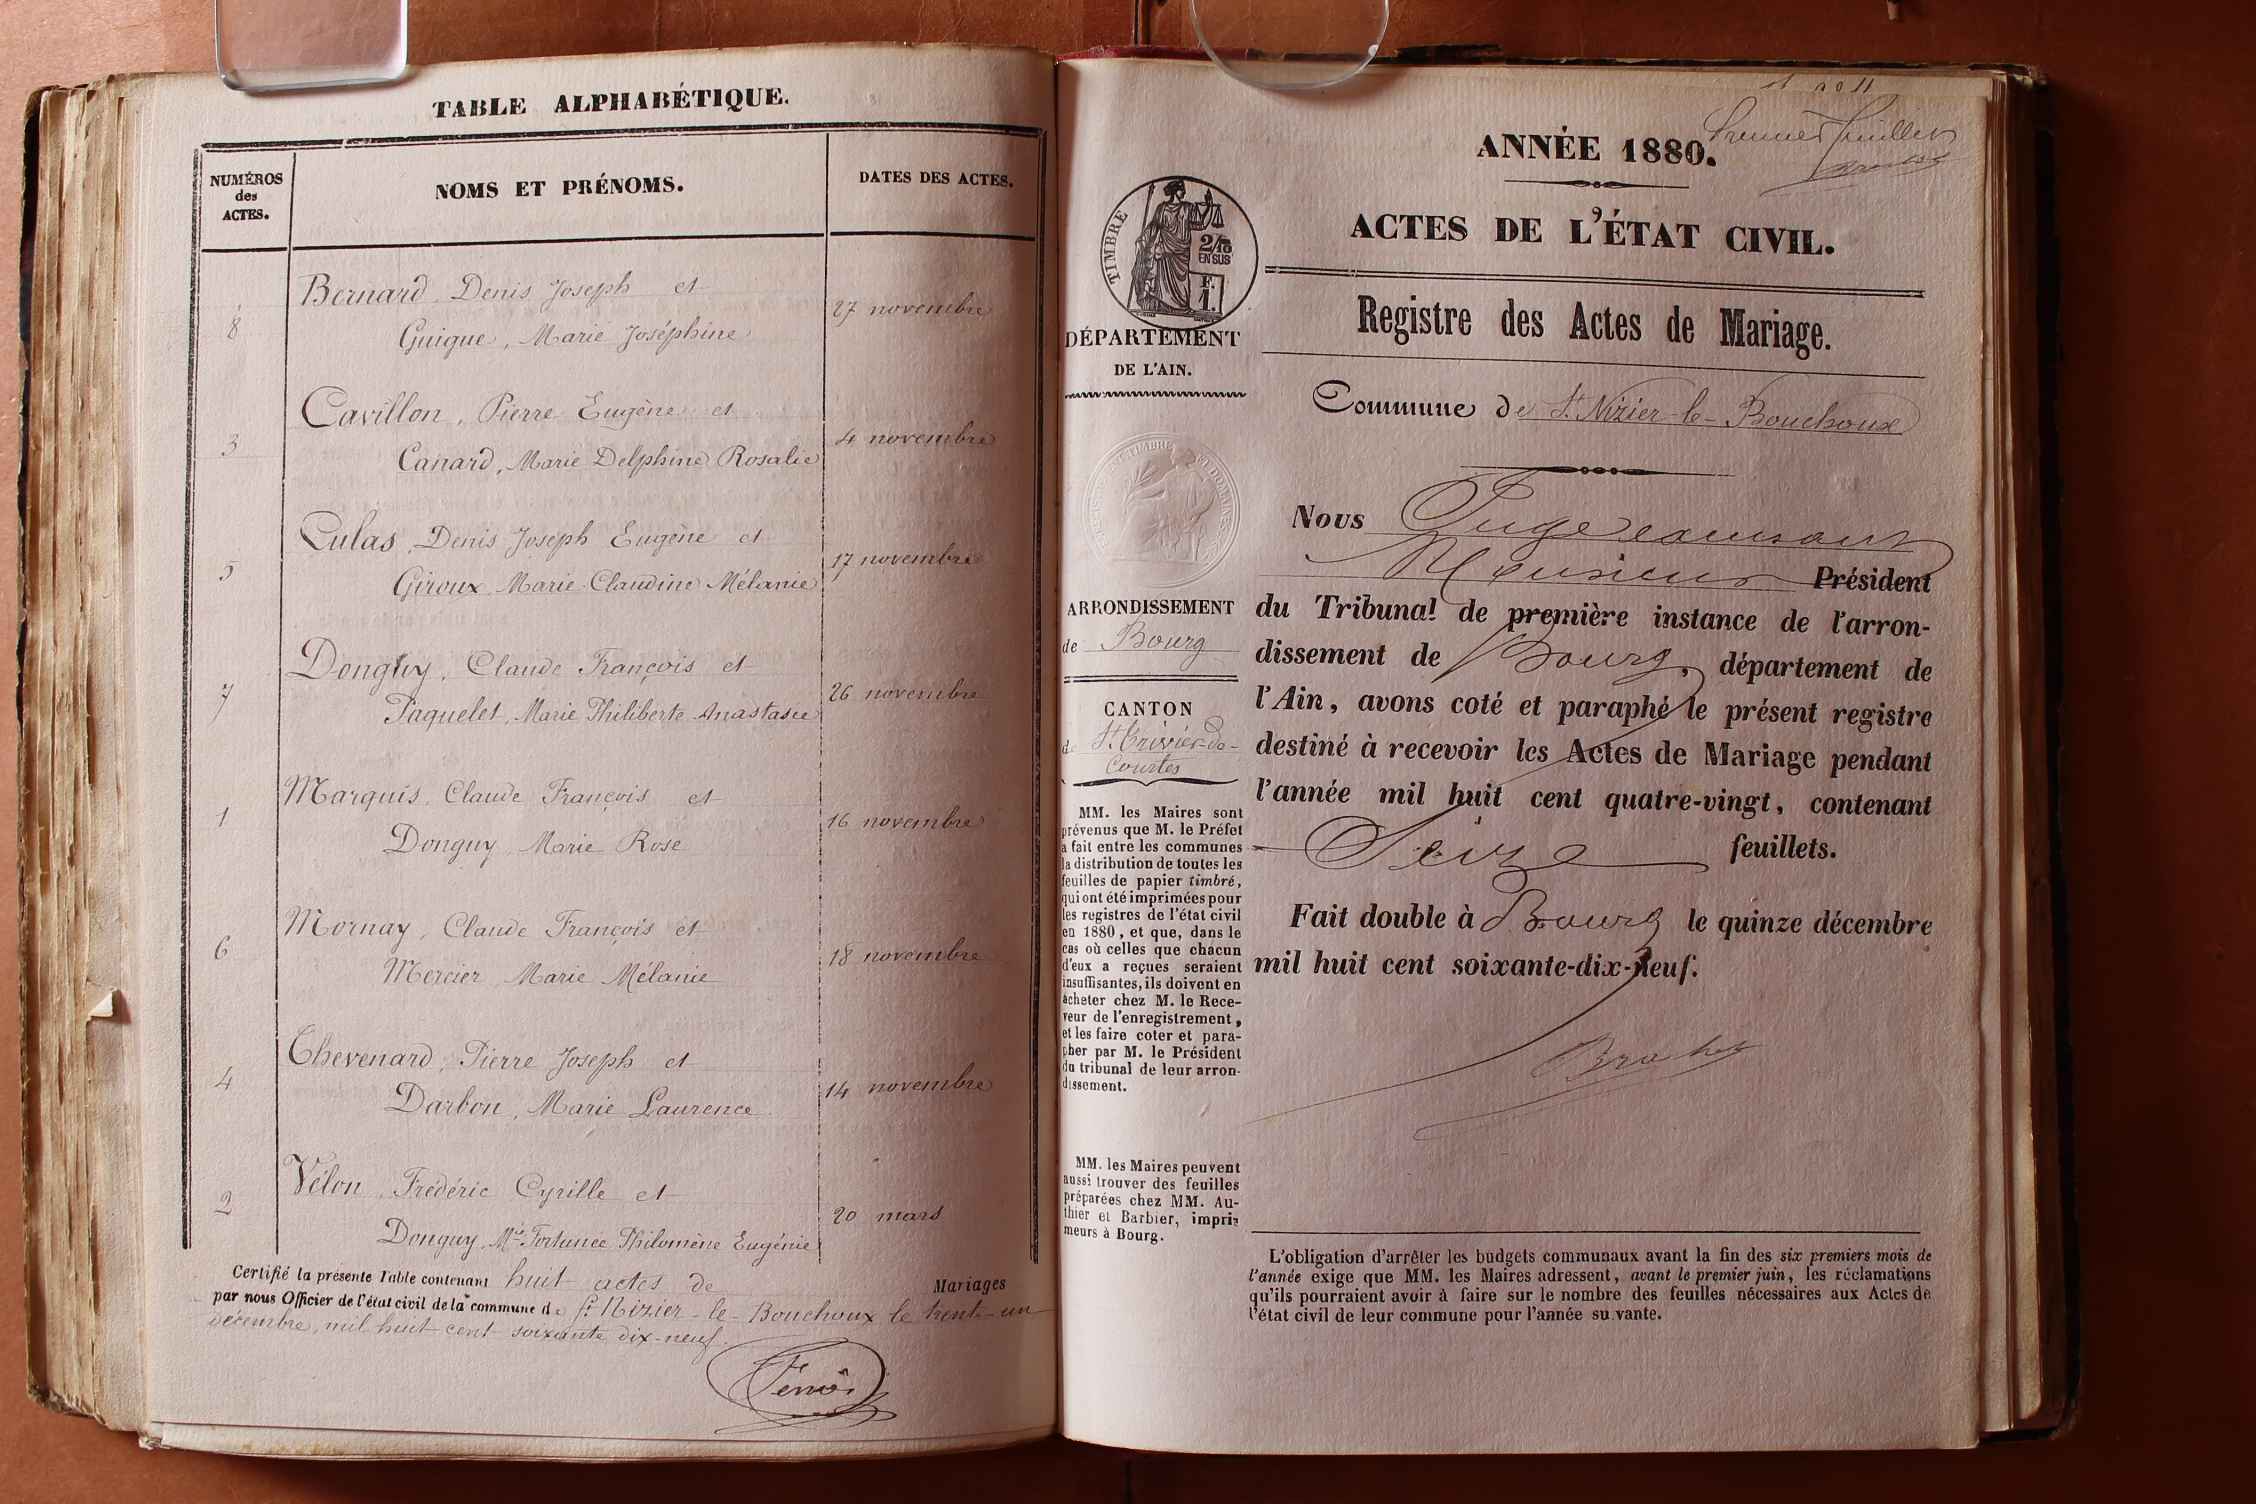 TABLE ALPHABÉTIQUE.
NUMÉROS
des
ACTES.
NOMS ET PRÉNOMS.
DATES DES ACTES.
8
Bernard, Denis Joseph et
Guigue, Marie Joséphine
27 novembre
3
Cavillon, Pierre Eugène et
Canard, Marie Delphine Rosalie
4 novembre
5
Culas, Denis Joseph Eugène et
Giroux, Marie Claudine Mélanie
17 novembre
7
Donguy, Claude François et
Paquelet, Marie Philiberte Anastasie
26 novembre
1
Marquis, Claude François et
Donguy, Marie Rose
16 novembre
6
Mornay, Claude François et
Mercier, Marie Mélanie
18 novembre
4
Chevenard, Pierre Joseph et
Darbon, Marie Laurence
14 novembre
2
Vélon, Frédéric Cyrille et
Donguy, Mie Fortunée Philomène Eugénie
20 mars
Certifié la présente Table contenant huit actes de Mariages
par nous Officier de l'état civil de la commune de St Nizier-le-Bouchoux le trente-un
décembre, mil huit cent soixante dix-neuf.
ANNÉE 1880.
Premier feuillet
ACTES DE L'ÉTAT CIVIL.
TIMBRE
2/10
EN SUS
F.
1.
Registre des Actes de Mariage.
DÉPARTEMENT
DE L'AIN.
Commune de St. Nizier-le-Bouchoux
ARRONDISSEMENT
de Bourg
CANTON
de St. Trivier-de-
Courtes
MM. les Maires sont
prévenus que M. le Préfet
a fait entre les communes
la distribution de toutes les
feuilles de papier timbré,
qui ont été imprimées pour
les registres de l'état civil
en 1880, et que, dans le
cas où celles que chacun
d'eux a reçues seraient
insuffisantes, ils doivent en
acheter chez M. le Rece-
veur de l'enregistrement,
et les faire coter et para-
pher par M. le Président
du tribunal de leur arron-
dissement.
MM. les Maires peuvent
aussi trouver des feuilles
préparées chez MM. Au-
thier et Barbier, impri-
meurs à Bourg.
Nous Juge remplaçant
Monsieur Président
du Tribunal de première instance de l'arron-
dissement de Bourg, département de
l'Ain, avons coté et paraphé le présent registre
destiné à recevoir les Actes de Mariage pendant
l'année mil huit cent quatre-vingt, contenant
Seize feuillets.
Fait double à Bourg le quinze décembre
mil huit cent soixante-dix-neuf.
L'obligation d'arrêter les budgets communaux avant la fin des six premiers mois de
l'année exige que MM. les Maires adressent, avant le premier juin, les réclamations
qu'ils pourraient avoir à faire sur le nombre des feuilles nécessaires aux Actes de
l'état civil de leur commune pour l'année suivante.